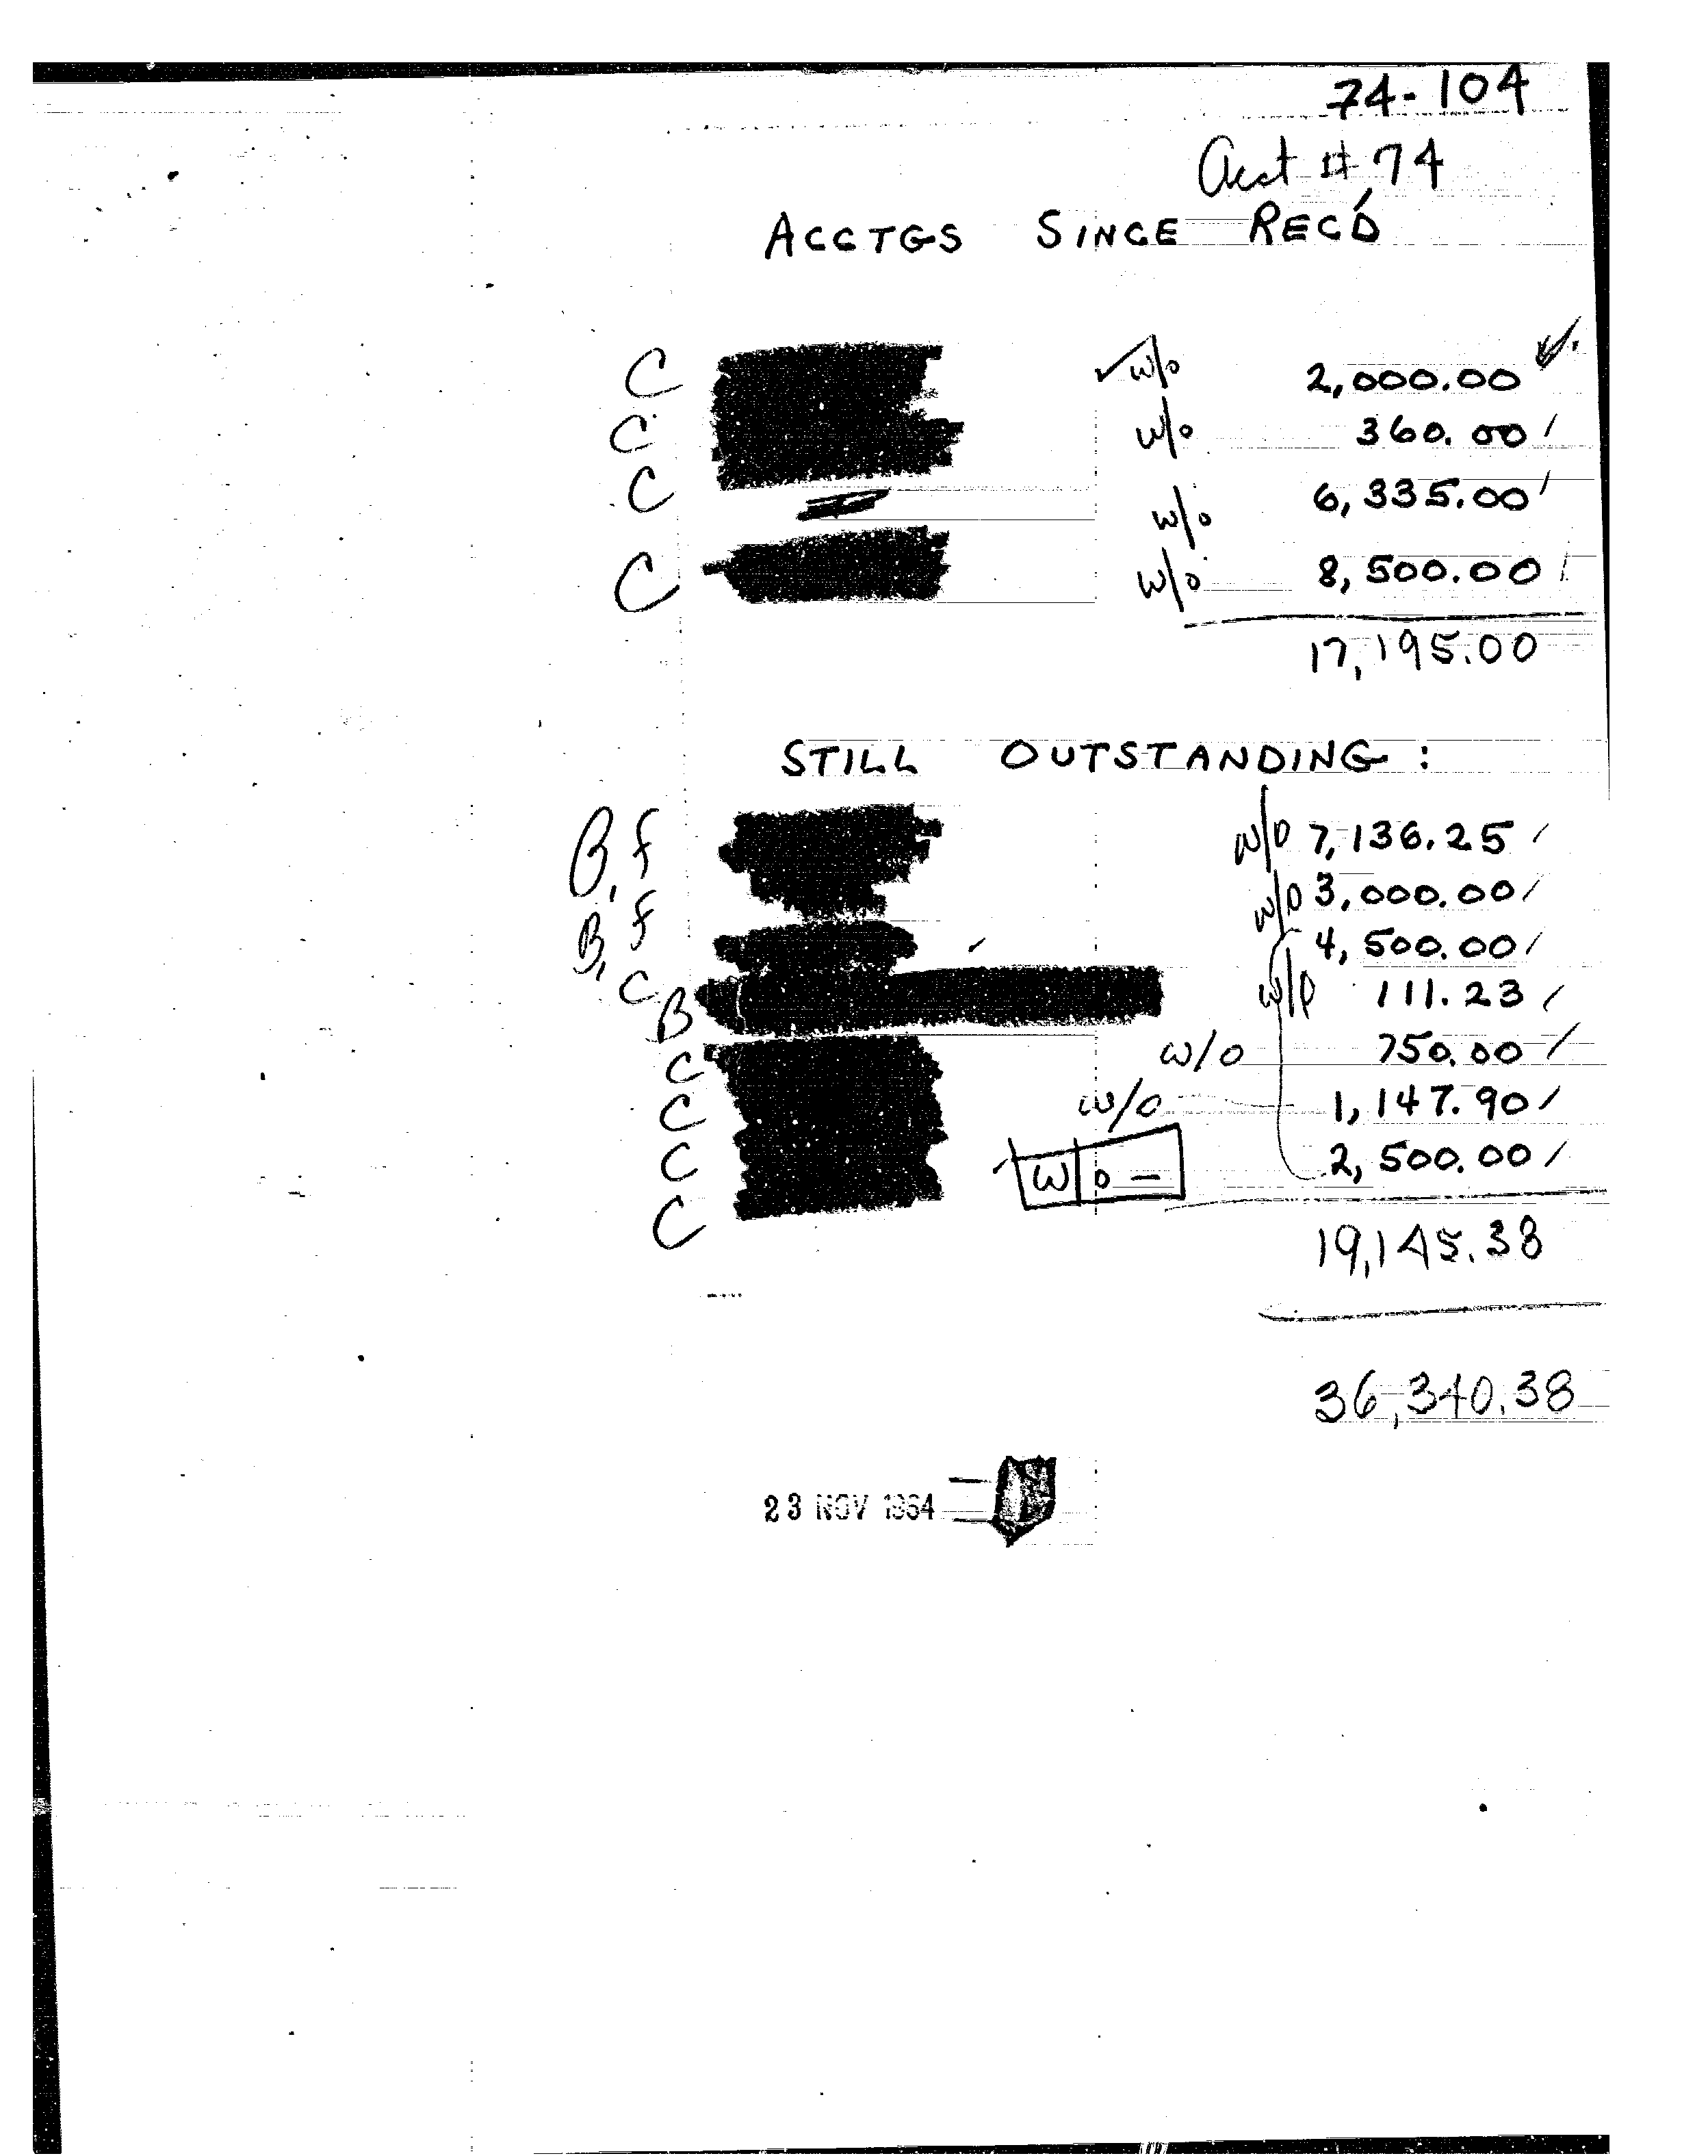 74-104
Acct # 74
ACCTGS SINCE REC'D
C ✓ w/o 2,000.00 ✓
C w/o 360.00 /
C w/o 6,335.00 /
C w/o 8,500.00 /
17,195.00
STILL OUTSTANDING:
B, f w/o 7,136.25 /
B, f w/o 3,000.00 /
C 4,500.00 /
B w/o 111.23 /
C w/o 750.00 /
C w/o 1,147.90 /
C w/o – 2,500.00 /
C
19,145.38
36,340.38
23 NOV 1964